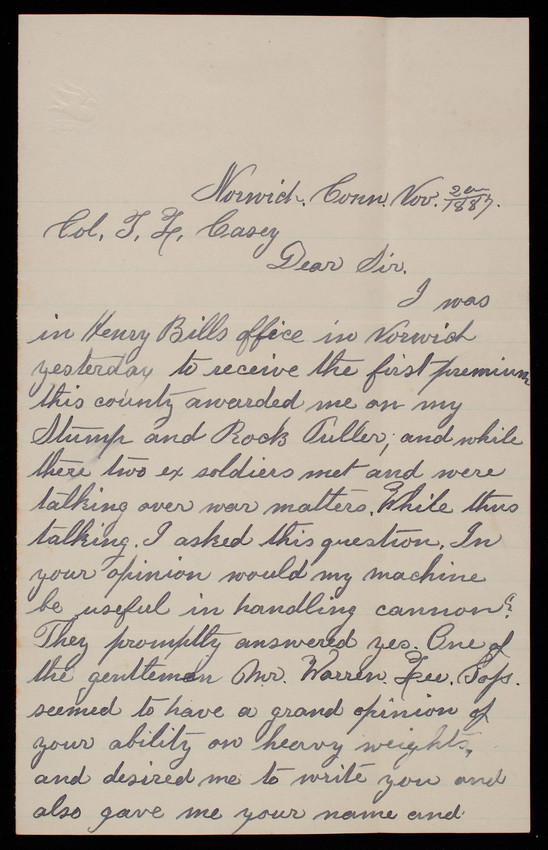 Norwich, Conn. Nov. 2d/1887.
Col. T. L. Casey
Dear Sir.
I was
in Henry Bills office in Norwich
yesterday to receive the first premium
this county awarded me on my
Stump and Rock Puller, and while
there two ex soldiers met and were
talking over war matters. While thus
talking. I asked this question. In
your opinion would my machine
be useful in handling cannon?
They promptly answered yes. One of
the gentlemen Mr. Warren
seemed to have a grand opinion of
your ability on heavy weights,
and desired me to write you and
also gave me your name and